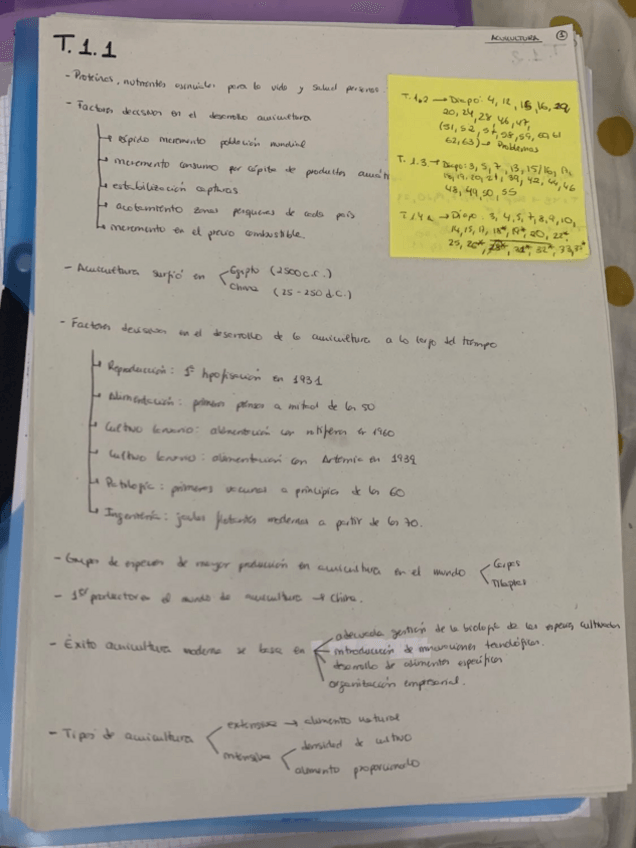 ACUICULTURA 1
T.1.1
- Proteínas, nutrientes esenciales para la vida y salud personas
- Factores decisivos en el desarrollo acuicultura
rápido incremento población mundial
incremento consumo per cápita de productos
estabilización capturas
acotamiento zonas pesqueras de cada país
incremento en el precio combustible.
- Acuicultura surgió en
Egipto (2500 a.C.)
China (25-250 d.C.)
- Factores decisivos en el desarrollo de la acuicultura a lo largo del tiempo
Reproducción: 1ª hipofisación en 1931
Alimentación: primeros piensos a mitad de los 50
Cultivo larvario: alimentación con rotíferos en 1960
Cultivo larvario: alimentación con Artemia en 1939
Patología: primeras vacunas a principios de los 60
Ingeniería: jaulas flotantes modernas a partir de los 70.
- Grupos de especies de mayor producción en acuicultura en el mundo
Carpas
Tilapias
- 1er productor en el mundo de acuicultura → China.
- Éxito acuicultura moderna se basa en
adecuada gestión de la biología de las especies cultivadas
introducción de innovaciones tecnológicas.
desarrollo de alimentos específicos
organización empresarial.
- Tipos de acuicultura
extensiva → alimento natural
intensiva
densidad de cultivo
alimento proporcionado
T.1.2 → Diapo: 4, 12,
20, 24, 28, 46, 47,
62, 63) → Problemas
T.1.3 → Diapo: 3, 5, 7, 13, 15/16,
48, 49, 50, 55
Diapo. 3, 4, 5, 7, 8, 9, 10,